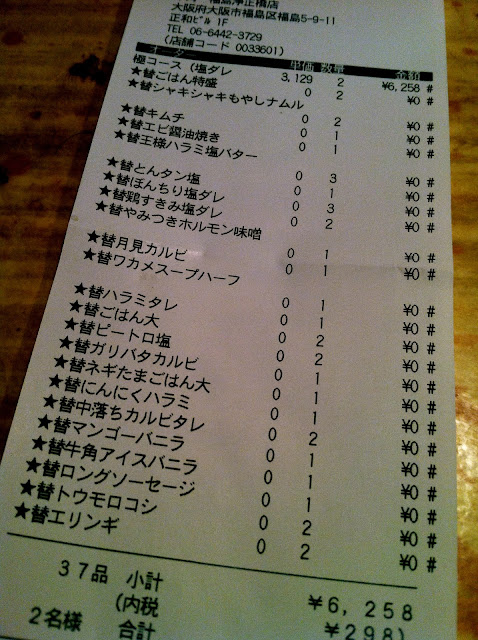 福島浄正橋店
大阪府大阪市福島区福島5-9-11
正和ビル 1F
TEL 06-6442-3729
(店舗コード 0033601)
オーダー 単価 数量 金額
極コース（塩ダレ 3,129 2 ¥6,258 #
★替ごはん特盛 0 2 ¥0 #
★替シャキシャキもやしナムル
0 2 ¥0 #
★替キムチ 0 1 ¥0 #
★替エビ醤油焼き 0 1 ¥0 #
★替王様ハラミ塩バター
0 3 ¥0 #
★替とんタン塩 0 1 ¥0 #
★替ぼんちり塩ダレ 0 3 ¥0 #
★替鶏すきみ塩ダレ 0 2 ¥0 #
★替やみつきホルモン味噌
0 1 ¥0 #
★替月見カルビ 0 1 ¥0 #
★替ワカメスープハーフ
0 1 ¥0 #
★替ハラミタレ 0 1 ¥0 #
★替ごはん大 0 2 ¥0 #
★替ピートロ塩 0 2 ¥0 #
★替ガリバタカルビ 0 1 ¥0 #
★替ネギたまごはん大 0 1 ¥0 #
★替にんにくハラミ 0 1 ¥0 #
★替中落ちカルビタレ 0 2 ¥0 #
★替マンゴーバニラ 0 1 ¥0 #
★替牛角アイスバニラ 0 1 ¥0 #
★替ロングソーセージ 0 1 ¥0 #
★替トウモロコシ 0 2 ¥0 #
★替エリンギ 0 2 ¥0 #
37品 小計 ¥6,258
(内税 ¥298)
2名様 合計